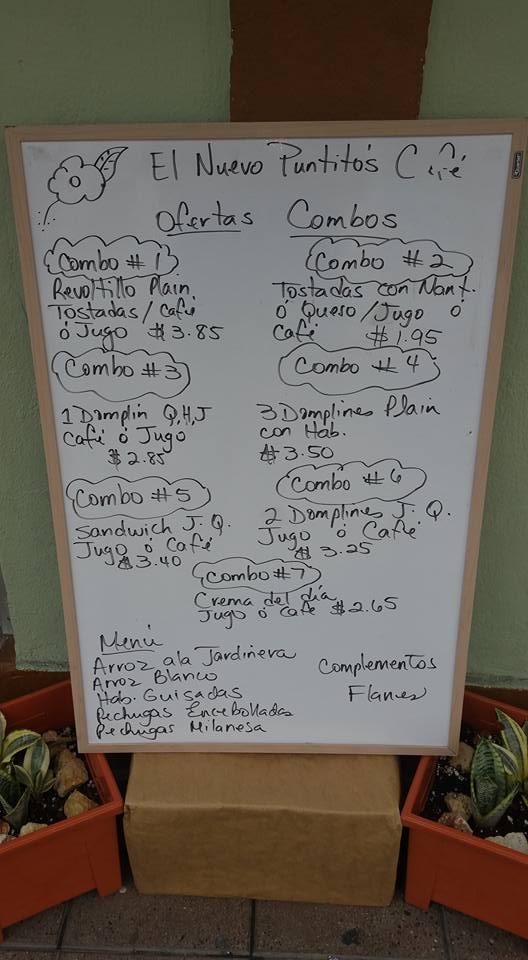 El Nuevo Puntito's Café
Ofertas Combos
Combo # 1
Revoltillo Plain
Tostadas / Café
ó Jugo $3.85
Combo # 2
Tostadas con Mant.
ó Queso / Jugo ó
café $1.95
Combo # 3
1 Domplin Q,H,J
Café ó Jugo
$2.85
Combo # 4
3 Domplines Plain
con Hab.
$3.50
Combo # 5
Sandwich J. Q.
Jugo ó Café
$3.40
Combo # 6
2 Domplines J. Q.
Jugo ó Café
$3.25
Combo # 7
Crema del día
Jugo ó Café $2.65
Menú
Arroz ala Jardinera
Arroz Blanco
Hab. Guisadas
Pechugas Encebolladas
Pechugas Milanesa
Complementos
Flanes